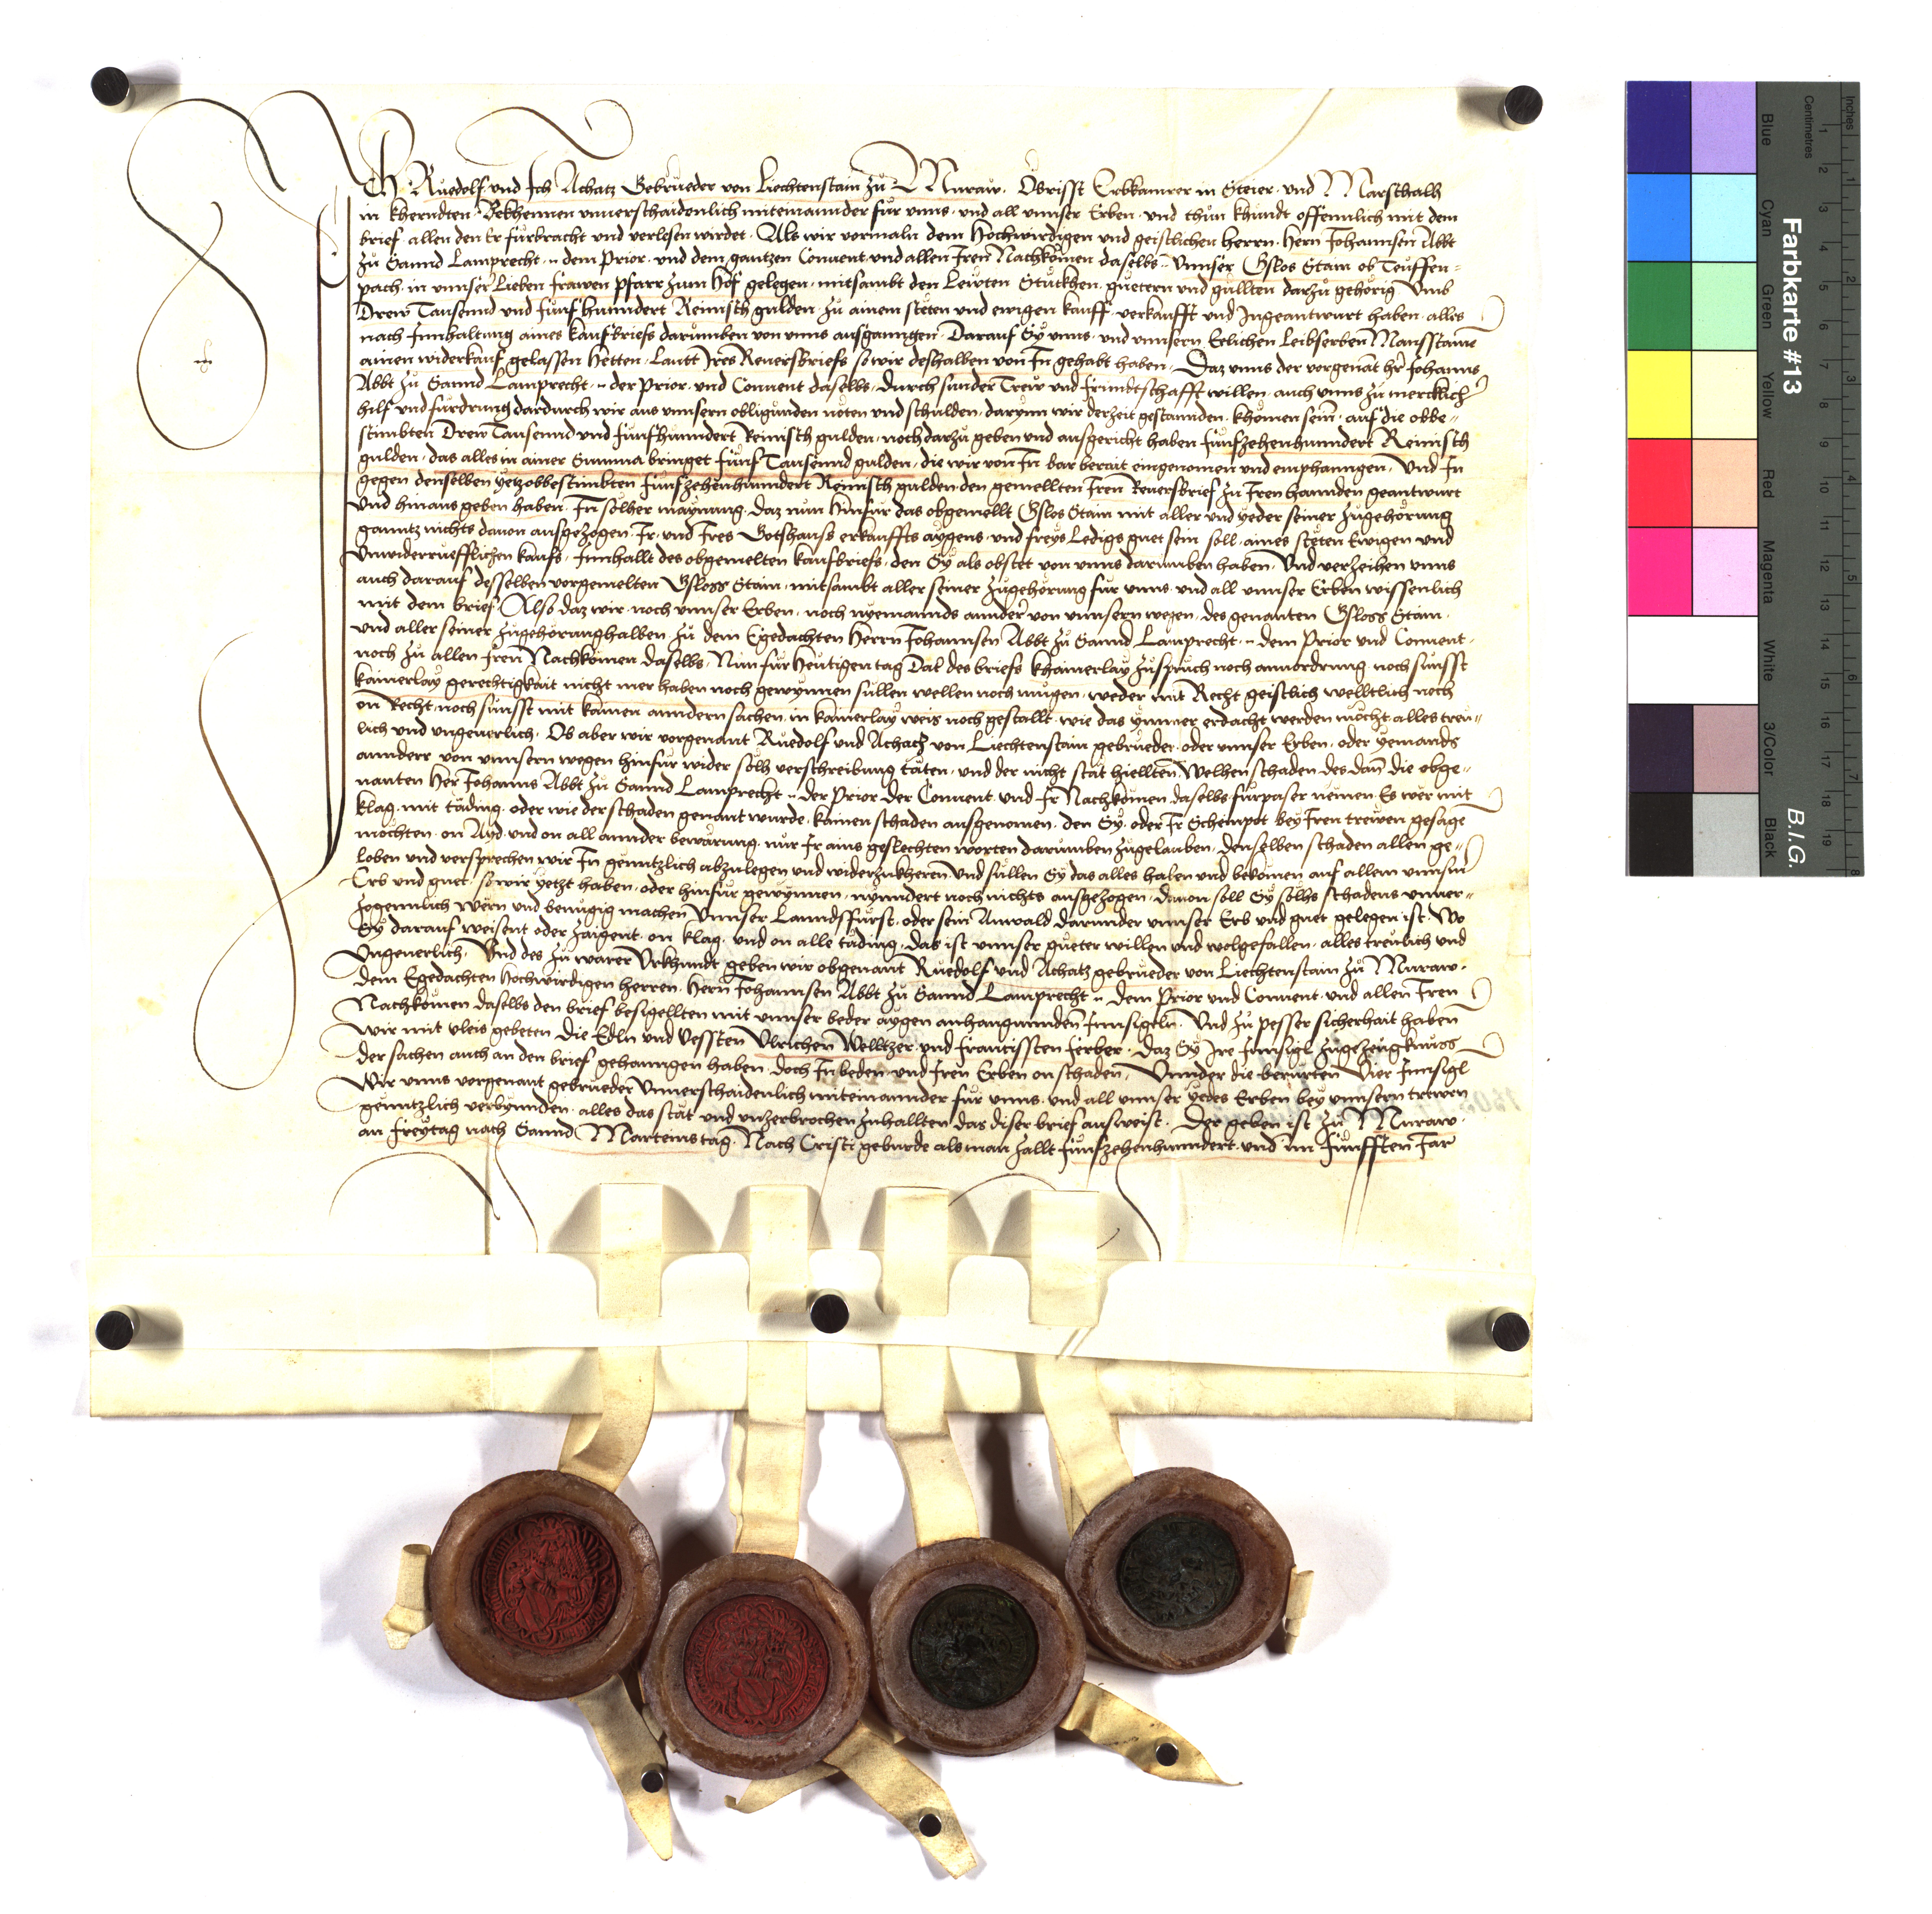 Ich Ruedolf und Ich Achatz Gebrueder von Liechtenstain zu Muraw. Obrisst Erbkamrer in Steier. und Marschalh
in kherndten. Bekhennen unverschaidenlich miteinannder fur unns. und all unnser Erben. und thun khundt offennlich mit dem
brief. allen den Er furbracht und verlesen wirdet. Als wir vormaln dem Hochwirdigen und geistlichen herrn. Hern Johannsen Abbt
zu Sannd Lamprecht. dem Prior. und dem gantzen Convent und allen Iren Nachkomen daselbs. Unnser Gslos Stain ob Teuffen=
pach. in unnser Lieben frawen pfarr zum Hof gelegen. mitsambt den Lewten Stuckhen. guetern und gullten darzu gehorig Umb
Drew Tausennd und funfhunndert Reinisch gulden. zu ainem steten und ewigen kauff. verkaufft und Ingeantwurt haben. alles
nach Innhaltung aines kaufbriefs darumben von unns ausganngen. Darauf Sy unns. und unnsern Eelichen Leibserben Mansstame
ainen widerkauf gelassen Hetten. Lautt Ires Reversbriefs so wir deshalben von In gehabt haben. Daz unns der vorgenant her Johanns
Abbt zu Sannd Lamprecht. der Prior. und Convent daselbs. durch sunder Trew und frundtschafft willen. auch unns zu mercklich
hilf und furdrung dardurch wir aus unnsern obligunden noten und schulden. darynn wir derzeit gestannden. khomen sein. auf die obbe=
stimbten Drew Tausennd und funfhunndert Reinisch gulden. noch darzu geben und ausgericht haben funfzehenhunndert Reinisch
gulden. das alles in ainer Summa bringet funf Tausennd gulden. die wir von In bar berait eingenomen und emphanngen. Und In
gegen denselben yetzobbestimbten funfzehenhunndert Reinisch gulden. den gemellten Iren Reversbrief zu Iren hannden geantwurt
und hinaus geben haben. In solher maynung. daz nun hinfur das obgemellt Gslos Stain mit aller und yeder seiner zugehorung
ganntz nichts davon ausgezogen. Ir. und Ires Gotshauss erkauffts aygens. und freys Ledigs guet sein soll. aines steten Ewigen und
Unwiderruefflichen kaufs. Innhallt des obgemelten kaufbriefs. den Sy als obstet von unns darumben haben. Und verzeihen unns
auch darauf desselben vorgemelten Gsloss Stain. mitsambt aller seiner zugehorung fur unns. und all unnser Erben wissenlich
mit dem brief. Also daz wir. noch unnser Erben. noch nyemannds annder von unnsern wegen. des genanten Gsloss Stain.
und aller seiner zugehorunghalben. zu dem Egedachten Herrn Johannsen Abbt zu Sannd Lamprecht. dem Prior und Convent.
noch zu allen Iren Nachkomen daselbs. Nun fur heutigen tag Dat des briefs khainerlay zuspruch noch anvordrung. noch sunsst
kainerlay gerechtigkait nicht mer haben noch gewynnen sullen wellen noch mugen. weder mit Recht geistlich welltlich noch
on Recht. noch sunsst mit kainen anndern sachen. in kainerlay weis noch gestallt. wie das ymmer erdacht werden mocht alles treu=
lich und ungeverlich. Ob aber wir vorgenant Ruedolf und Achatz von Liechtenstain gebrueder. oder unnser Erben. oder yemands
annderr von unnsern wegen hinfur wider solh verschreibung taten. und der nicht stat hiellten. Welhen schaden des dan die obge=
nanten Her Johanns Abbt zu Sannd Lamprecht. der Prior der Convent. und Ir Nachkomen daselbs furpaser nemen. Es wer mit
klag. mit tading. oder wie der schaden genant wurde. kainen schaden ausgenomen. den Sy. oder Ir Schempot bey Iren trewen gesage
mochten. on Ayd. und on all annder bewarung. nur Ir ains geslechten worten darumben zugelauben. denselben schaden allen ge=
loben und versprechen wir In genntzlich abzulegen und widerzukheren. Und sullen Sy das alles haben und bekomen auf allem unnsm
Erb und guet. so wir yetzt haben. oder hinfur gewynnen. nynndert noch nichts ausgezogen. davon soll Sy solhs schadens unver=
zogennlich wern und benugig machen Unnser Lanndsfurst. oder sein Anwald. darunder unnser Erb und guet gelegen ist. Wo
Sy darauf weisent oder zaigent. on klag. und on alle tading. das ist unnser gueter willen und wolgefallen. alles treulich und
Ungeverlich. Und des zu warer Urkhundt geben wir obgenant Ruedolf und Achatz gebrueder von Liechtenstain zu Muraw.
dem Egedachten Hochwirdigen herren. Hern Johannsen Abbt zu Sannd Lamprecht. dem Prior und Convent. und allen Iren
Nachkomen daselbs den brief besigellten mit unnser beder aygen anhangunnden Innsigeln. Und zu pesser sicherhait haben
Wir mit vleis gebeten. die Edln und Vessten Ulrichen Welltzer. und Francissten Ferber. Daz Sy Ire Innsigl zugezeugknuss
der sachen auch an den brief gehanngen haben. doch In beden. und Iren Erben on schaden. Unnder die berurten Vier Innsigl
Wir unns vorgenant gebrueder Unverschaidenlich miteinannder fur unns. und all unnser yedes Erben bey unnsern trewen
genntzlich verbynnden. alles das stat und unzerbrochen zuhallten. das diser brief ausweist. Der geben ist zu Muraw.
an Freytag nach Sannd Marteins tag. Nach Cristi geburde als man zallt Funfzehenhunndert. und im Funfften Jar
Farbkarte #13
B.I.G.
Inches
Centimetres
1 2 3 4 5 6 7 8 9 10 11 12 13 14 15 16 17 18 19
1 2 3 4 5 6 7 8
Blue
Cyan
Green
Yellow
Red
Magenta
White
3/Color
Black